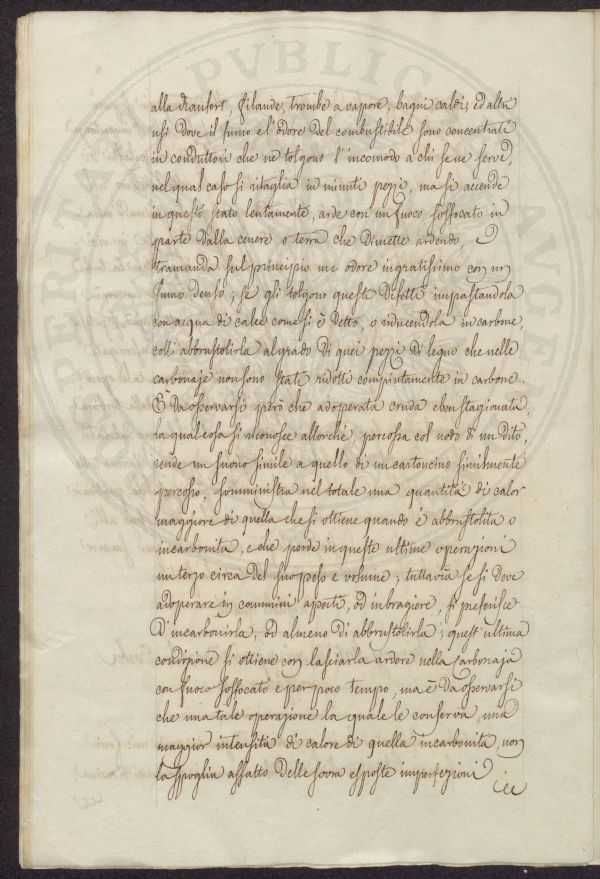 alla Ranfort, filande, trombe a vapore, bagni caldi, ed altri
usi dove il fumo e l'odore del combustibile sono concentrati
in conduttori che ne tolgono l'incomodo a chi se ne serve,
nel qual caso si ritaglia in minuti pezzi, ma si accende
in questo stato lentamente, arde con un fuoco soffocato in
parte dalla cenere o terra che dimette ardendo, e
tramanda sul principio un odore ingratissimo con un
fumo denso; se gli tolgono questi difetti impastandola
con acqua di calce come si è detto, o riducendola in carbone,
coll' abbrustolirla al grado di quei pezzi di legno che nelle
carbonaje non sono stati ridotti compiutamente in carbone.
È da osservarsi però che adoperata cruda e ben stagionata,
la qual cosa si riconosce allorché, percossa col nodo di un dito,
rende un suono simile a quello di un cartoncino similmente
percosso, somministra nel totale una quantità di calor
maggiore di quella che si ottiene quando è abbrustolita o
incarbonita, e che perde in queste ultime operazioni
un terzo circa del suo peso e volume; tuttavia se si deve
adoperare in cammini aperti, od in bragiere, si preferisce
d'incarbonirla, od almeno di abbrustolirla; quest'ultima
condizione si ottiene con lasciarla ardere nella carbonaja
con fuoco soffocato e per poco tempo, ma è da osservarsi
che una tale operazione la quale le conserva una
maggior intensità di calore di quella incarbonita, non
la spoglia affatto delle sovra esposte imperfezioni